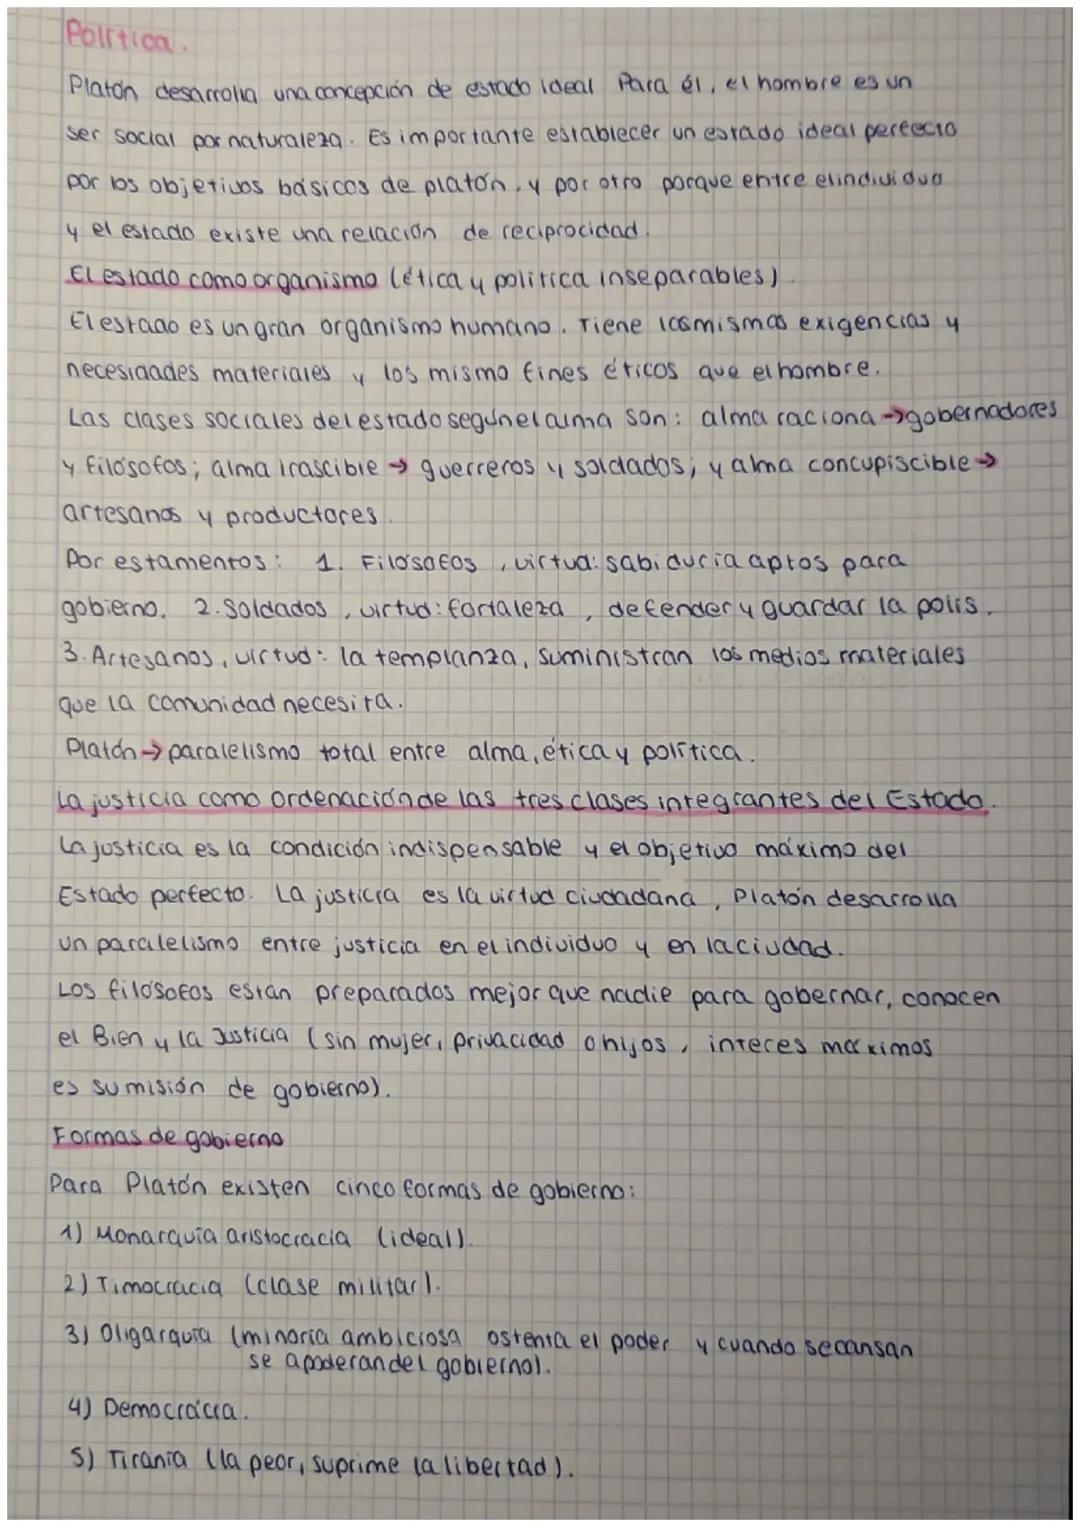 Política.
Platón desarrolla una concepción de estado ideal Para él, el hombre es un
ser social por naturaleza. Es importante establecer un estado ideal perfecto
por los objetivos básicos de platón, y por otro porque entre el individuo
y el estado existe una relación de reciprocidad.
El estado como organismo (ética y política inseparables).
El estado es un gran organismo humano. Tiene las mismas exigencias y
necesidades materiales y los mismo fines éticos que el hombre.
Las clases sociales del estado según el alma son: alma raciona → gobernadores
y filósofos; alma irascible → guerreros y soldados; y alma concupiscible →
artesanos y productores.
Por estamentos: 1. Filósofos, virtud: sabiduría aptos para
gobierno. 2. Soldados, virtud: fortaleza, defender y guardar la polis.
3. Artesanos, virtud: la templanza, suministran los medios materiales
que la comunidad necesita.
Platón → paralelismo total entre alma, ética y política.
La justicia como ordenación de las tres clases integrantes del Estado.
La justicia es la condición indispensable y el objetivo máximo del
Estado perfecto. La justicia es la virtud ciudadana, Platón desarrolla
un paralelismo entre justicia en el individuo y en la ciudad.
Los filósofos están preparados mejor que nadie para gobernar, conocen
el Bien y la Justicia (sin mujer, privacidad o hijos, interes maximos
es su misión de gobierno).
Formas de gobierno
Para Platón existen cinco formas de gobierno:
1) Monarquía aristocracia (ideal).
2) Timocracia (clase militar).
3) Oligarquía (minoría ambiciosa ostenta el poder y cuando se cansan
se apoderan del gobierno).
4) Democrácia.
5) Tiranía (la peor, suprime la libertad).